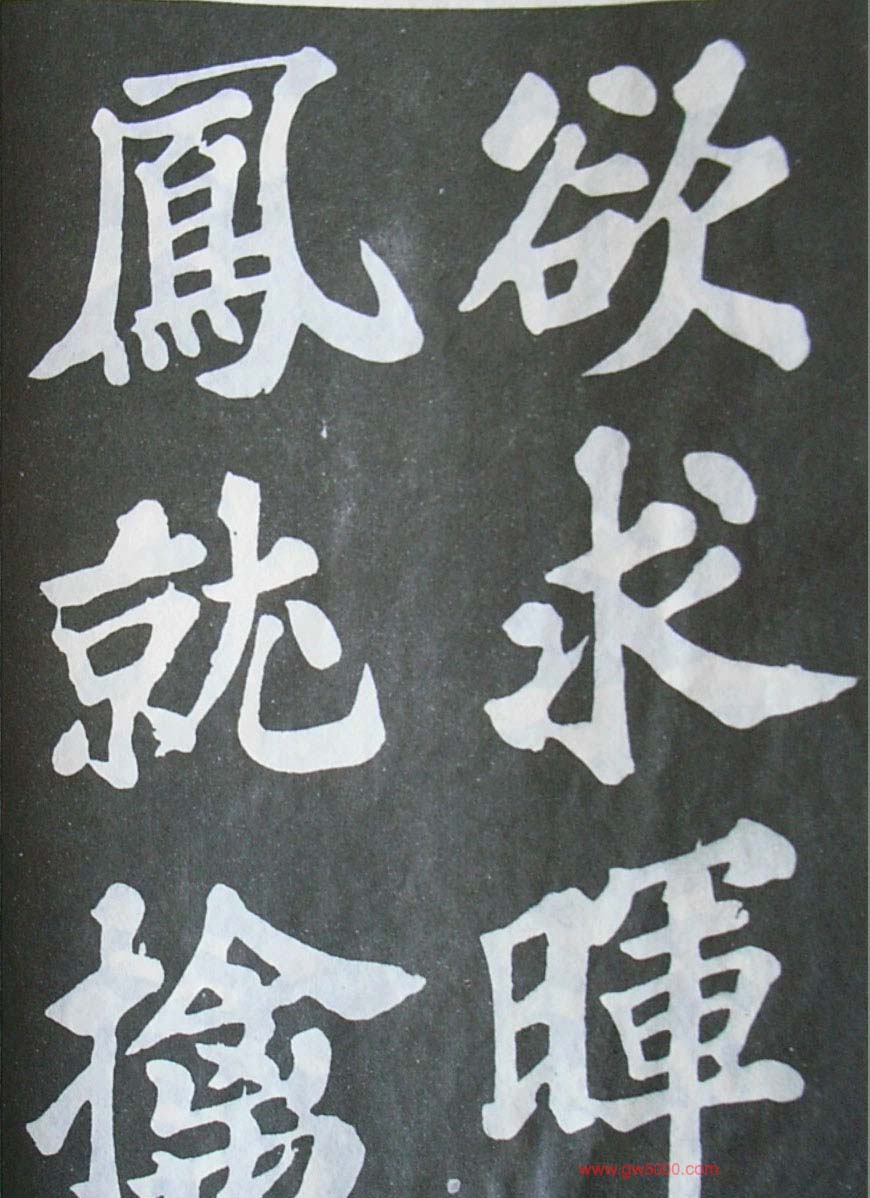 欲求暉
鳳就擒
www.gw5000.com